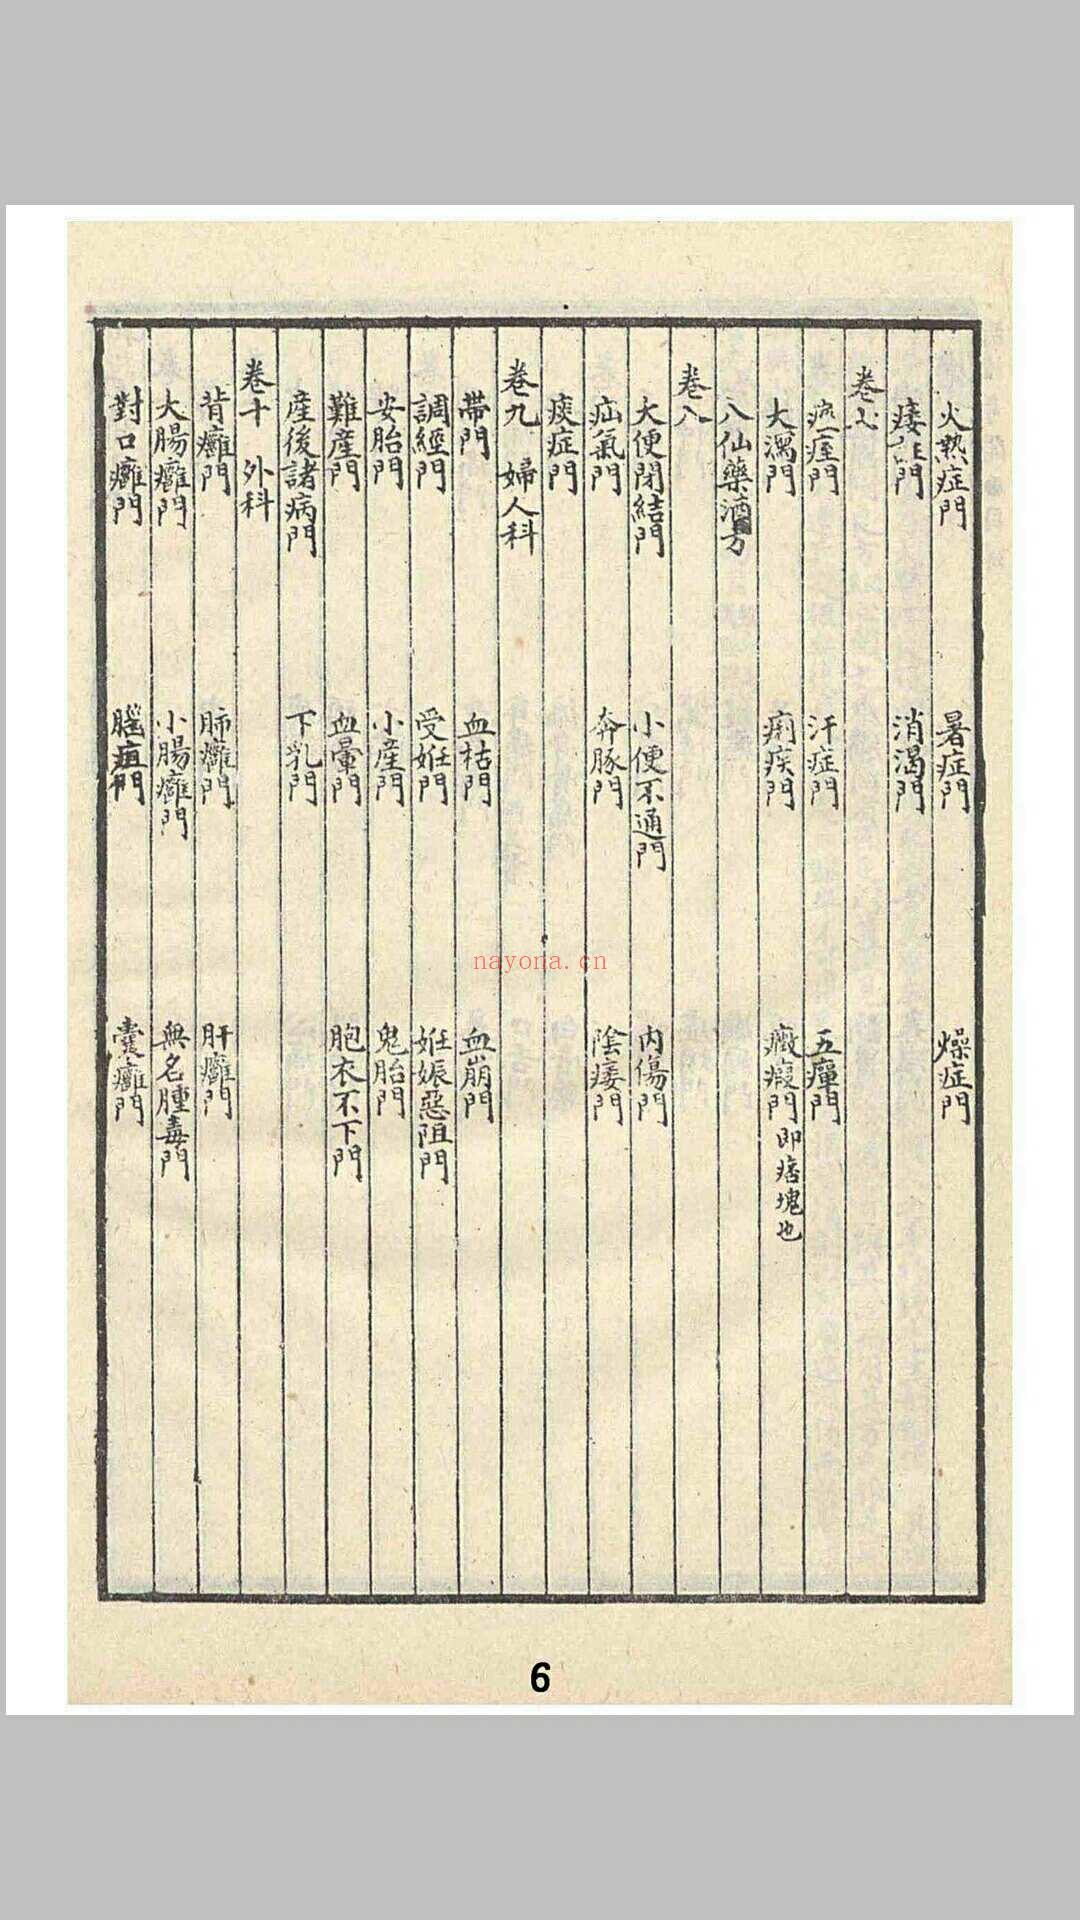 火熱症門　暑症門　燥症門
痿症門　消渴門
卷七
瘧症門　汗症門　五癉門
大瀉門　痢疾門　癥瘕門即痞塊也
八仙藥酒方
卷八
大便閉結門　小便不通門　內傷門
疝氣門　奔豚門　陰痿門
痰症門
卷九　婦人科
帶門　血枯門　血崩門
調經門　受姙門　姙娠惡阻門
安胎門　小產門　鬼胎門
難產門　血暈門　胞衣不下門
產後諸病門　下乳門
卷十　外科
背癰門　肺癰門　肝癰門
大腸癰門　小腸癰門　無名腫毒門
對口癰門　腦疽門　囊癰門
nayona.cn
6